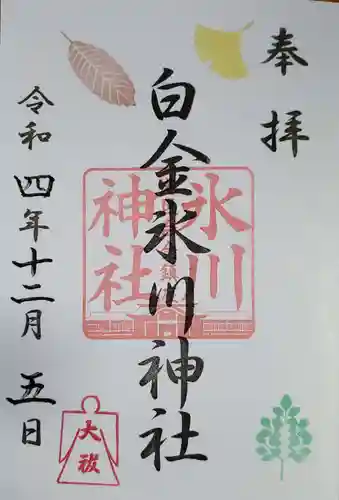 奉拝
白金氷川神社
氷川
神社
令和四年十二月五日
大祓